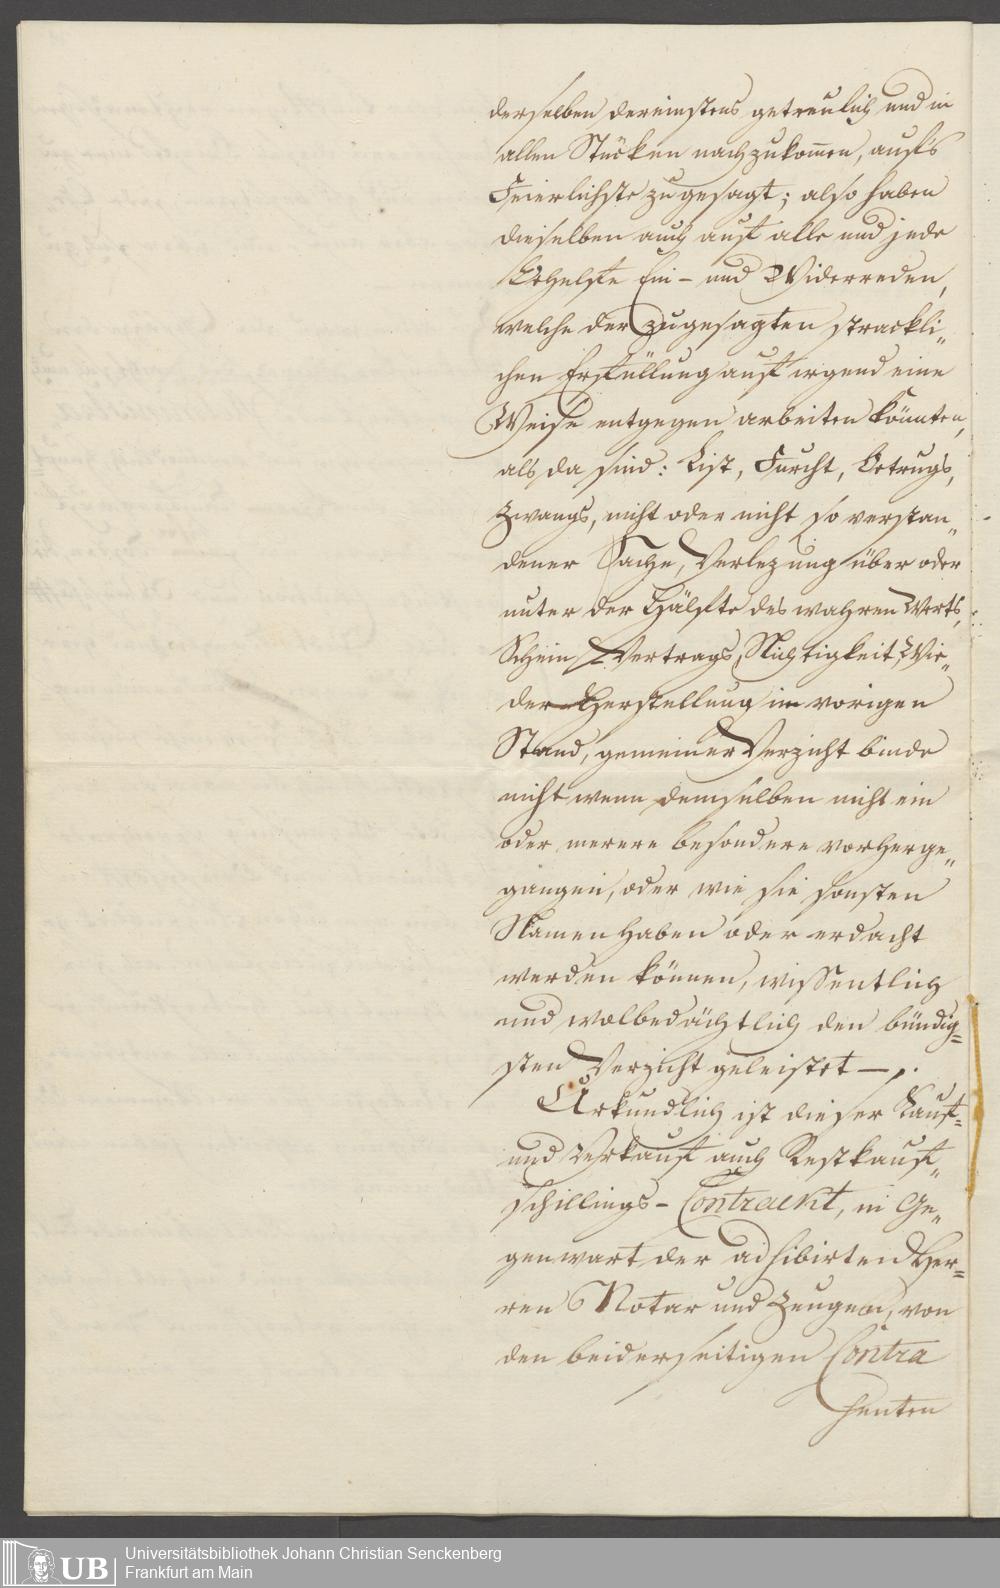 derselben dereinstens getreulich und in
allen Stücken nachzukom̄en, auf's
Feierlichste zugesagt; also haben
dieselben auch auf alle und jede
Behelfe Ein- und Widerreden,
welche der zugesagten strackli„
chen Erfüllung auf irgend eine
Weise entgegen arbeiten könnten,
als da sind: List, Furcht, Betrugs,
Zwangs, nicht oder nicht so verstan„
dener Sache, Verlezung über oder
unter der Hälfte des wahren Werts,
Schein Vertrags, Nichtigkeit, Wie„
der Herstellung im vorigen
Stand, gemeiner Verzicht binde
nicht wenn demselben nicht ein
oder merere besondere vorherge„
gangen, oder wie sie sonsten
Namen haben oder erdacht
werden können, wissentlich
und wolbedächtlich den bündig=
sten Verzicht geleistet —.
Urkundlich ist dieser Kauf=
und Verkauf auch Restkauf„
schillings-Contrackt, in Ge„
genwart der adhibirten Her=
ren Notar und Zeugen, von
den beiderseitigen Contra
henten
UB
Universitätsbibliothek Johann Christian Senckenberg
Frankfurt am Main